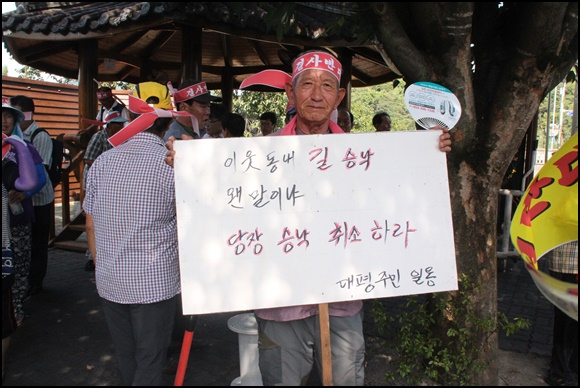 결사반대
이웃동네 길 승낙
왠 말이냐
당장 승낙 취소하라
대평주민 일동